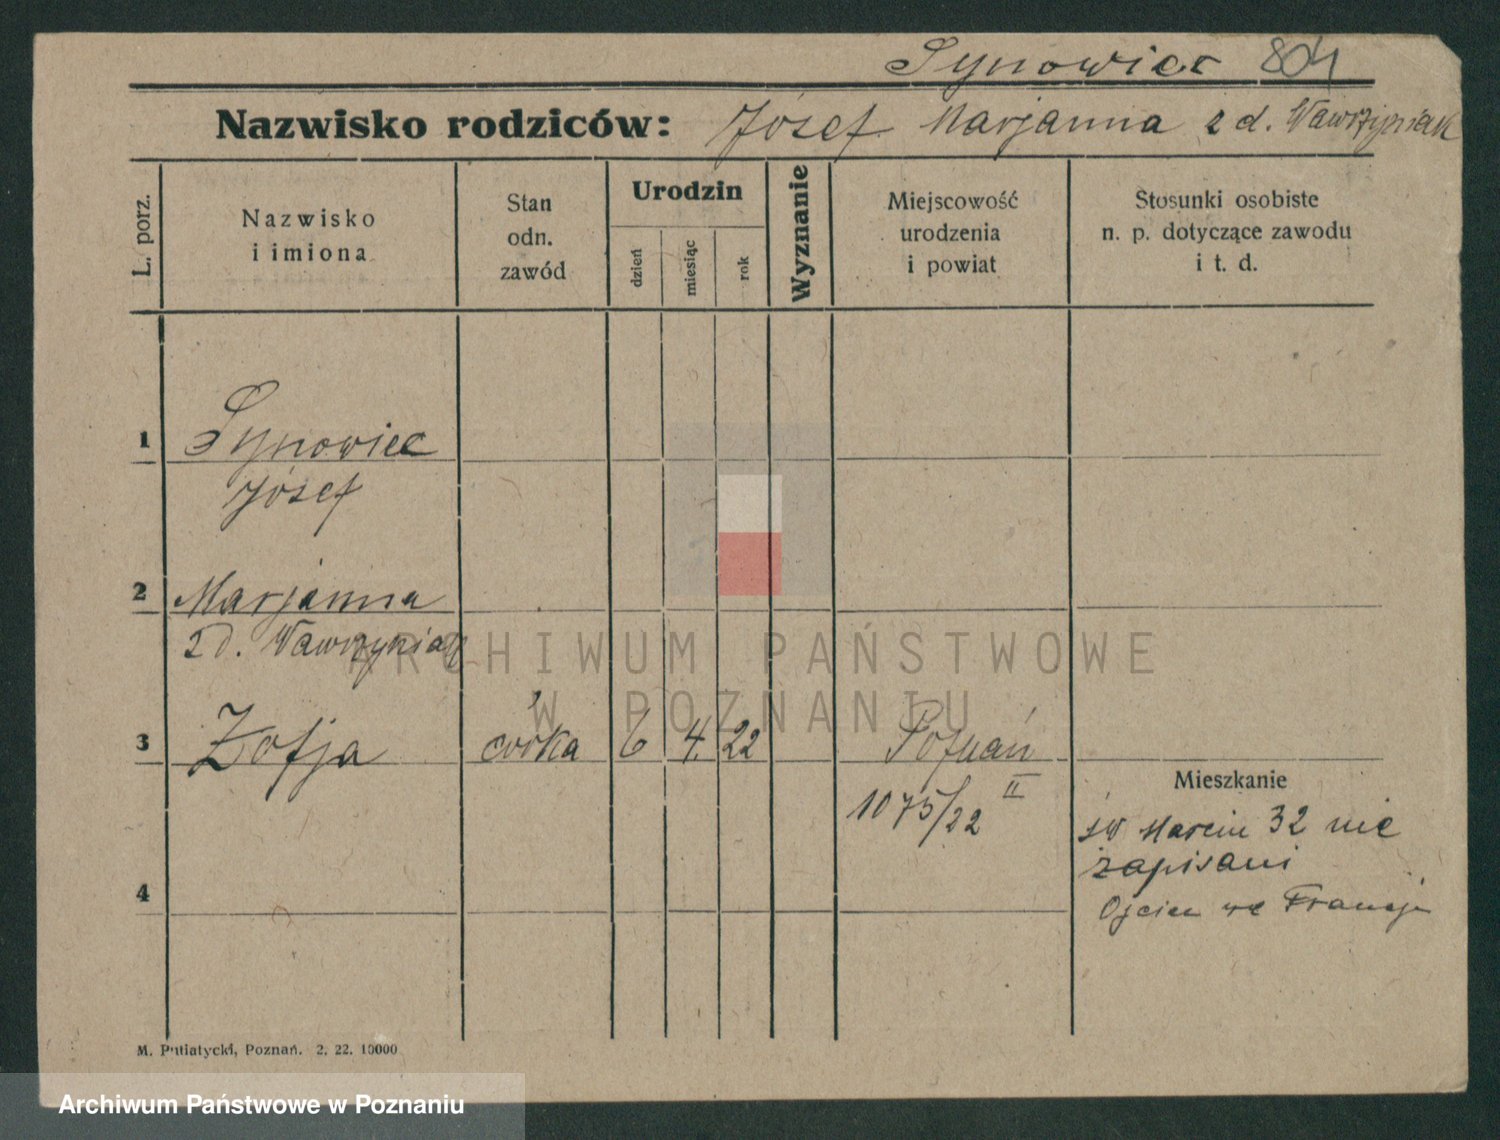 Synowiec 804
Nazwisko rodziców: Józef Marjanna z d. Wawrzyniak
L. porz.
Nazwisko
i imiona
Stan
odn.
zawód
Urodzin
dzień
miesiąc
rok
Wyznanie
Miejscowość
urodzenia
i powiat
Stosunki osobiste
n. p. dotyczące zawodu
i t. d.
1 Synowiec
Józef
2 Marjanna
z d. Wawrzyniak
ARCHIWUM PAŃSTWOWE
W POZNANIU
3 Zofja córka 6 4. 22 Poznań
1075/22 II
Mieszkanie
św Marcin 32 nie
zapisani
Ojciec we Francji
4
M. Putiatycki, Poznań. 2. 22. 10000
Archiwum Państwowe w Poznaniu